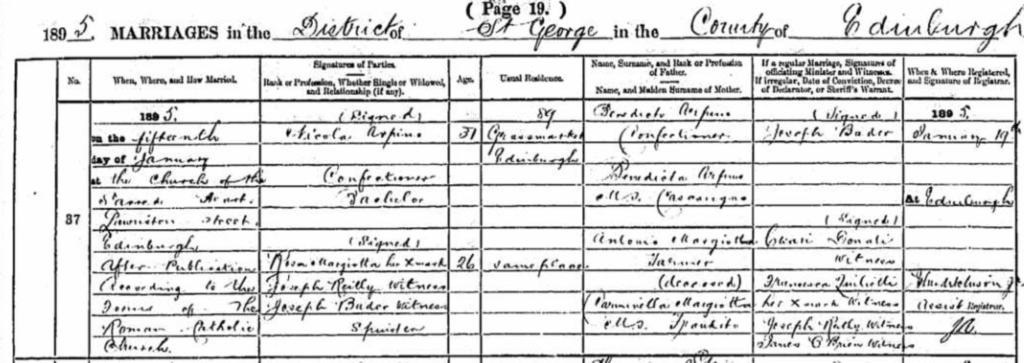 ( Page 19. )
1895. MARRIAGES in the District of St George in the County of Edinburgh
No.
When, Where, and How Married.
Signatures of Parties.
Rank or Profession, Whether Single or Widowed, and Relationship (if any).
Age.
Usual Residence.
Name, Surname, and Rank or Profession of Father.
Name, and Maiden Surname of Mother.
If a regular Marriage, Signatures of officiating Minister and Witnesses.
If irregular, Date of Conviction, Decree of Declarator, or Sheriff's Warrant.
When & Where Registered, and Signature of Registrar.
37
1895.
on the fifteenth
day of January
at the Church of the
Sacred Heart
Lauriston Street
Edinburgh
After Publication
According to the
Forms of the
Roman Catholic
Church.
(Signed)
Nicola Arpino
Confectioner
Bachelor
(Signed)
Rosa Margiotta her X mark
Joseph Reilly Witness
Joseph Bader Witness
Spinster
31
26
89
Grassmarket
Edinburgh
same place
Benedicto Arpino
Confectioner
Benedicta Arpino
M.S.
Antonio Margiotta
Farmer
(deceased)
Carminella Margiotta
M.S.
(Signed)
Joseph Bader
(Signed)
Donati
Witness
Francesca
her X mark Witness
Joseph Reilly Witness
James O'Brien Witness
1895.
January 19th
At Edinburgh
Assist Registrar.